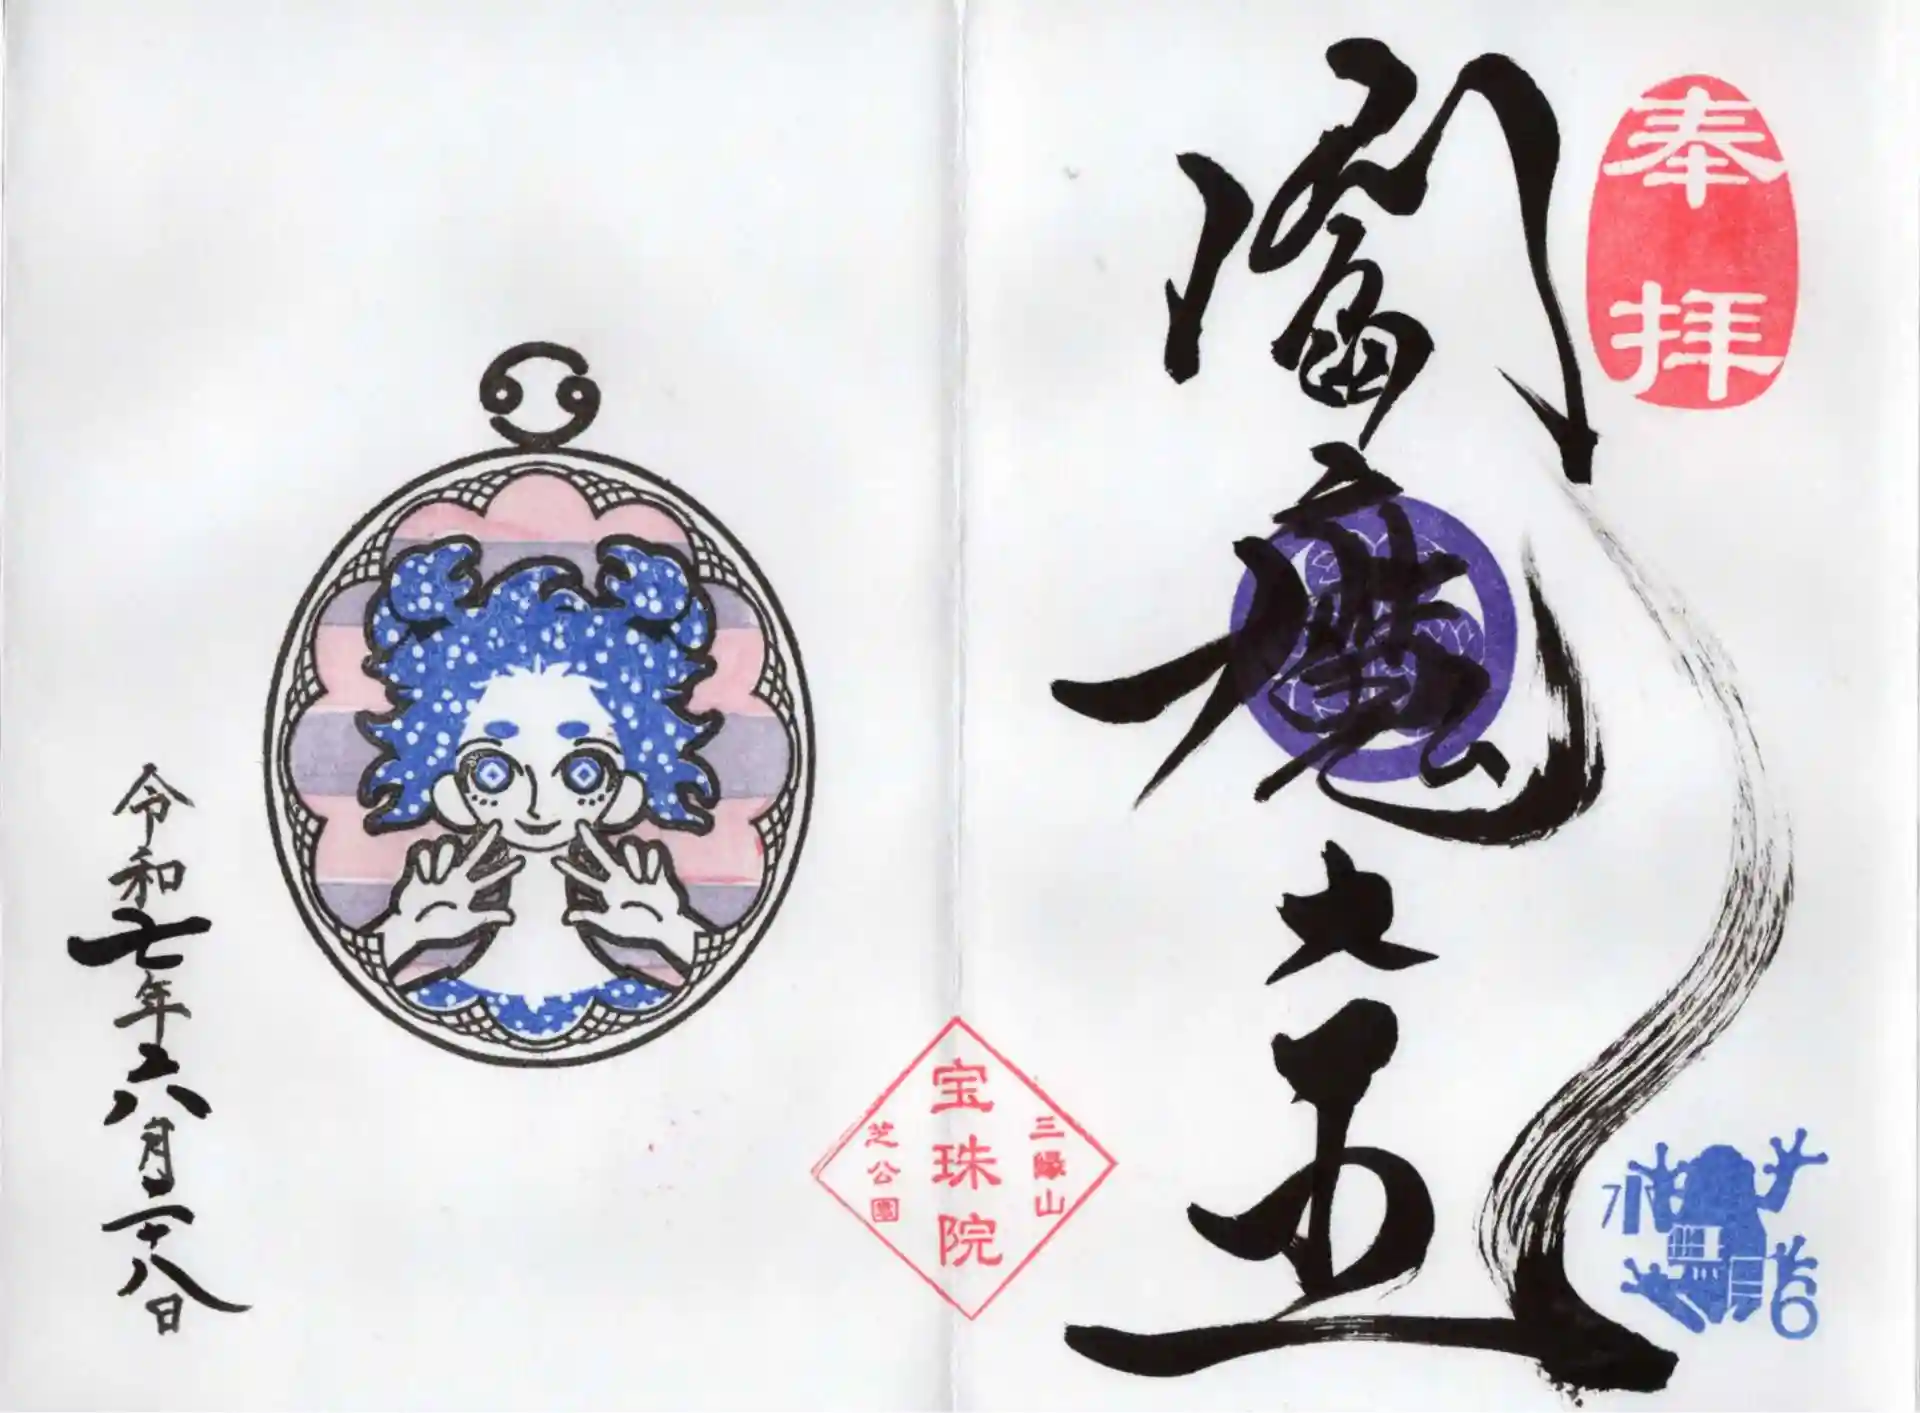 奉拝
閻魔
大王
三縁山
宝珠院
芝公園
6
令和七年六月二十八日